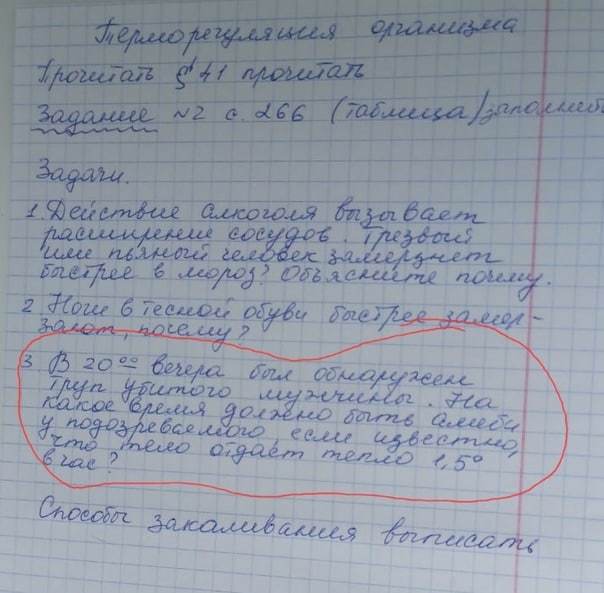 Терморегуляция организма
Прочитать § 41 прочитать
Задание №2 с. 266 (таблица) заполнить
Задачи.
1. Действие алкоголя вызывает
расширение сосудов. Трезвый
или пьяный человек замерзнет
быстрее в мороз? Объясните почему.
2. Ноги в тесной обуви быстрее замер-
зают, почему?
3. В 20⁰⁰ вечера был обнаружен
труп убитого мужчины. На
какое время должно быть алиби
у подозреваемого, если известно,
что тело отдаёт тепло 1,5°
в час?
Способы закаливания выписать